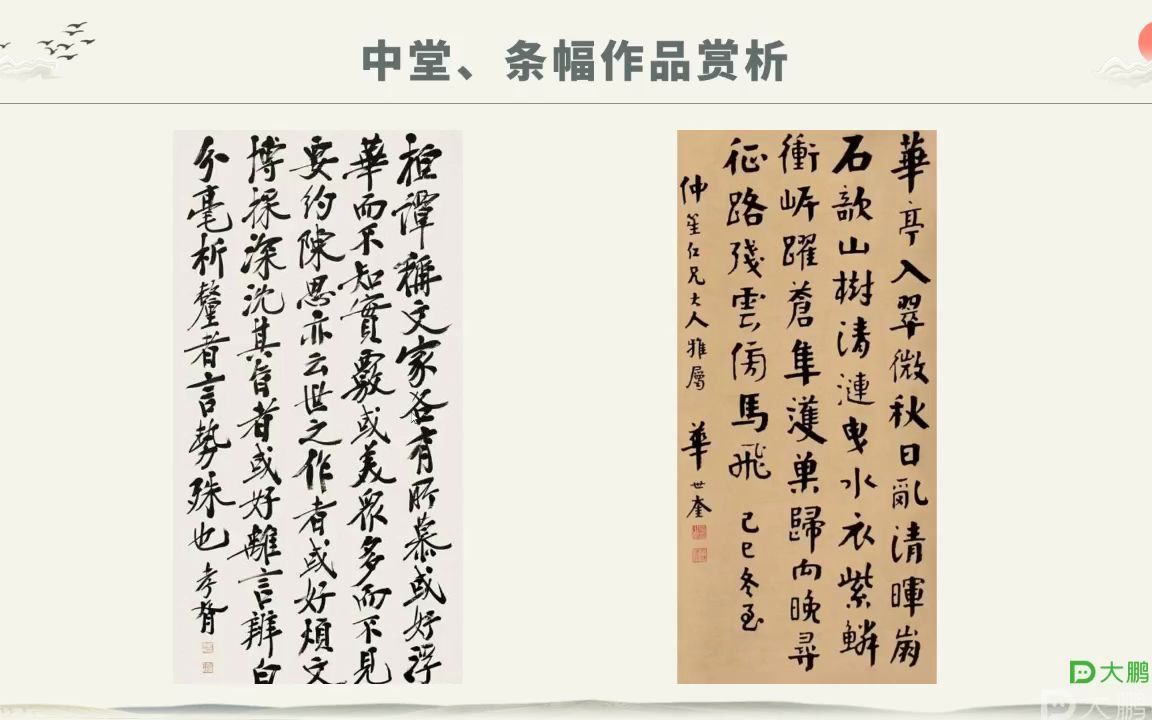 中堂、条幅作品赏析
桓譚稱文家各有所慕或好浮
華而不知實覈或美眾多而不見
要約陳思亦云世之作者或好煩文
博採深沈其旨者或好離言辨白
分毫析釐者言勢殊也 孝胥
華亭入翠微秋日亂清暉崩
石欹山樹清漣曳水衣紫鱗
衝岸躍蒼隼護巢歸向晚尋
征路殘雲傍馬飛 己巳冬至
仲笙仁兄大人雅屬 華世奎
大鹏
大鹏